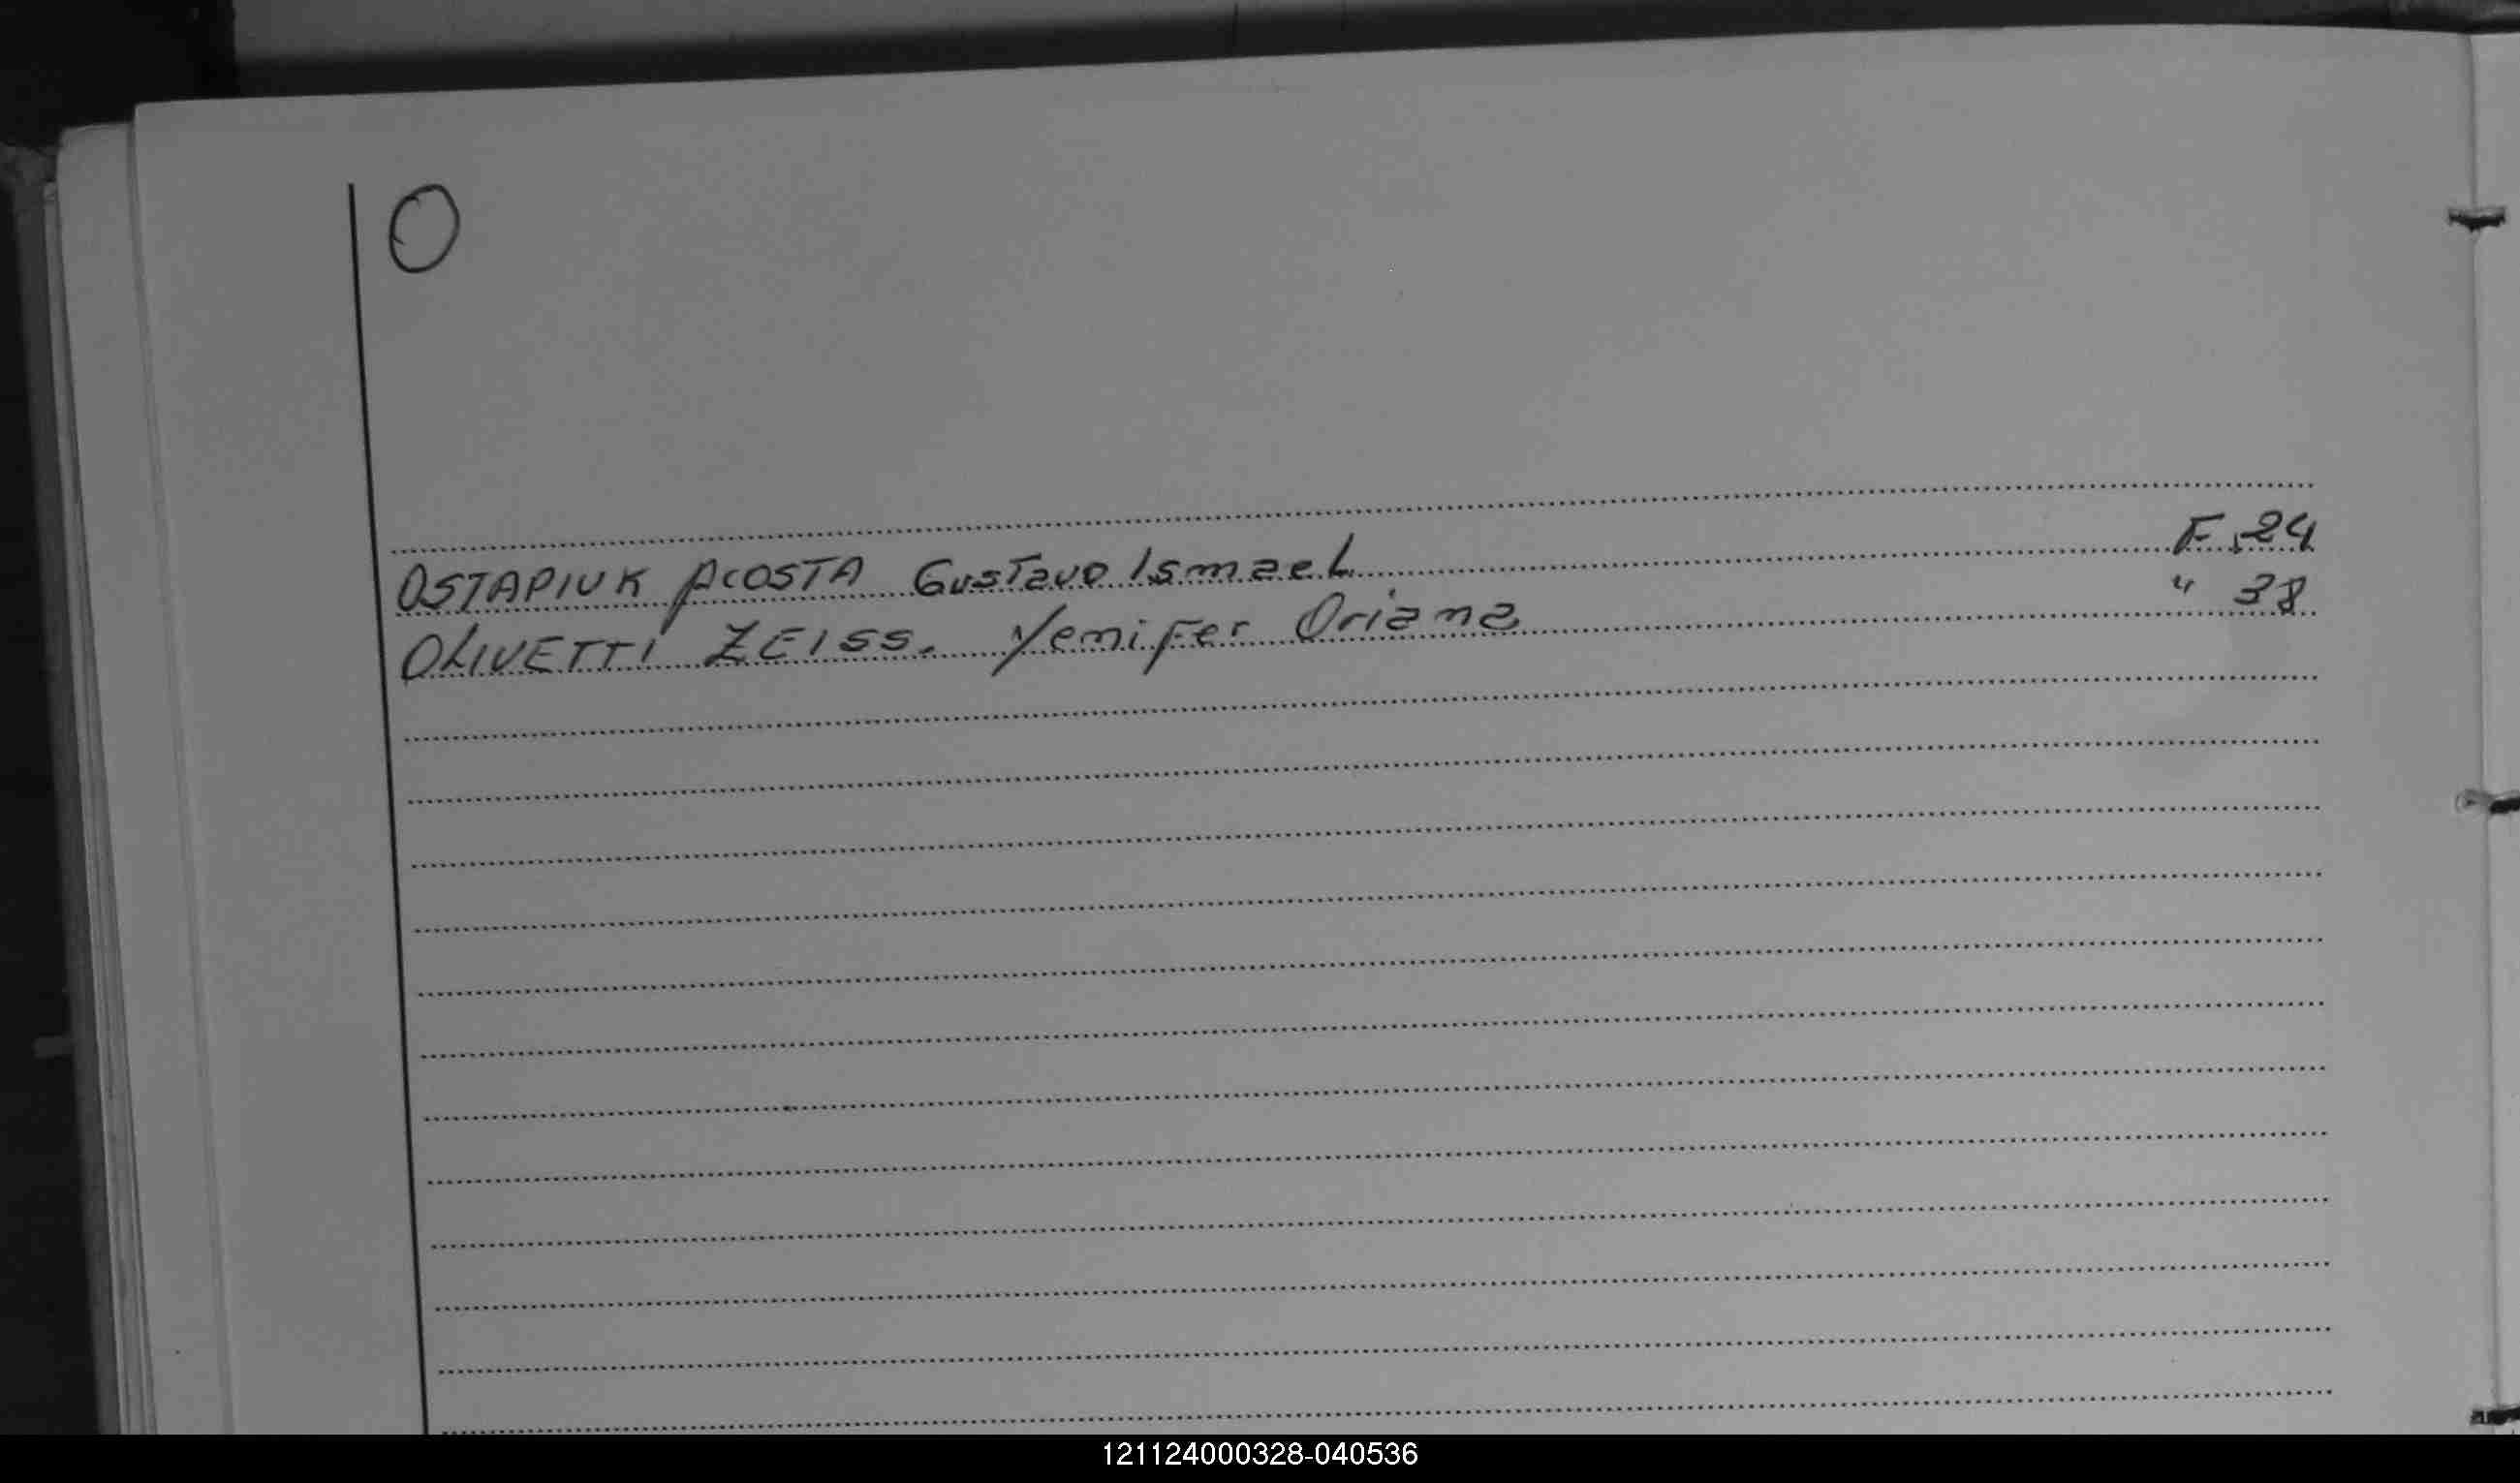 O
OSTAPIUK ACOSTA Gustavo Ismael F. 24
OLIVETTI ZEISS. Yenifer Oriana " 38
121124000328-040536